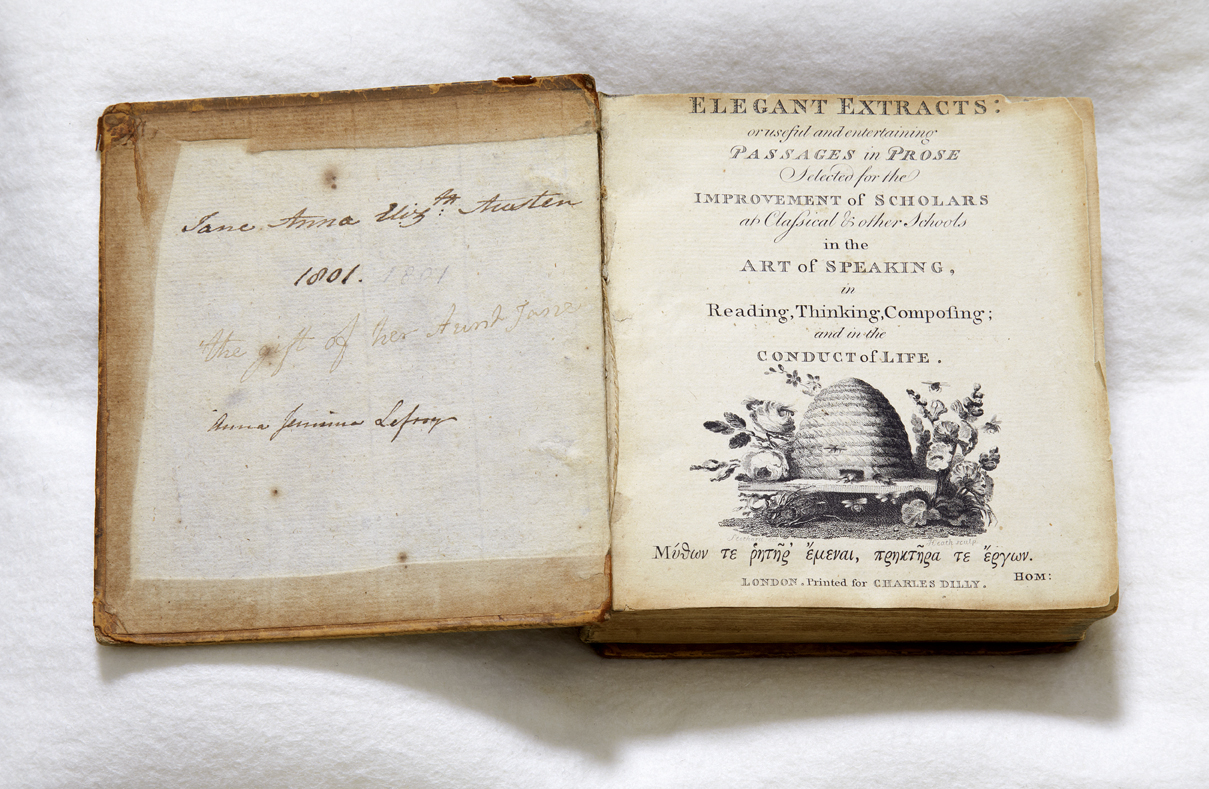 Jane Anna Eliz.th Austen
1801. 1801
the gift of her Aunt Jane
Anna Jemima Lefroy
ELEGANT EXTRACTS:
or useful and entertaining
PASSAGES in PROSE
Selected for the
IMPROVEMENT of SCHOLARS
at Claſsical & other Schools
in the
ART of SPEAKING,
in
Reading, Thinking, Compoſing;
and in the
CONDUCT of LIFE.
Heath sculp.
Μύθων τε ῥητῆρ' ἔμεναι, πρηκτῆρα τε ἔργων.
HOM:
LONDON. Printed for CHARLES DILLY.